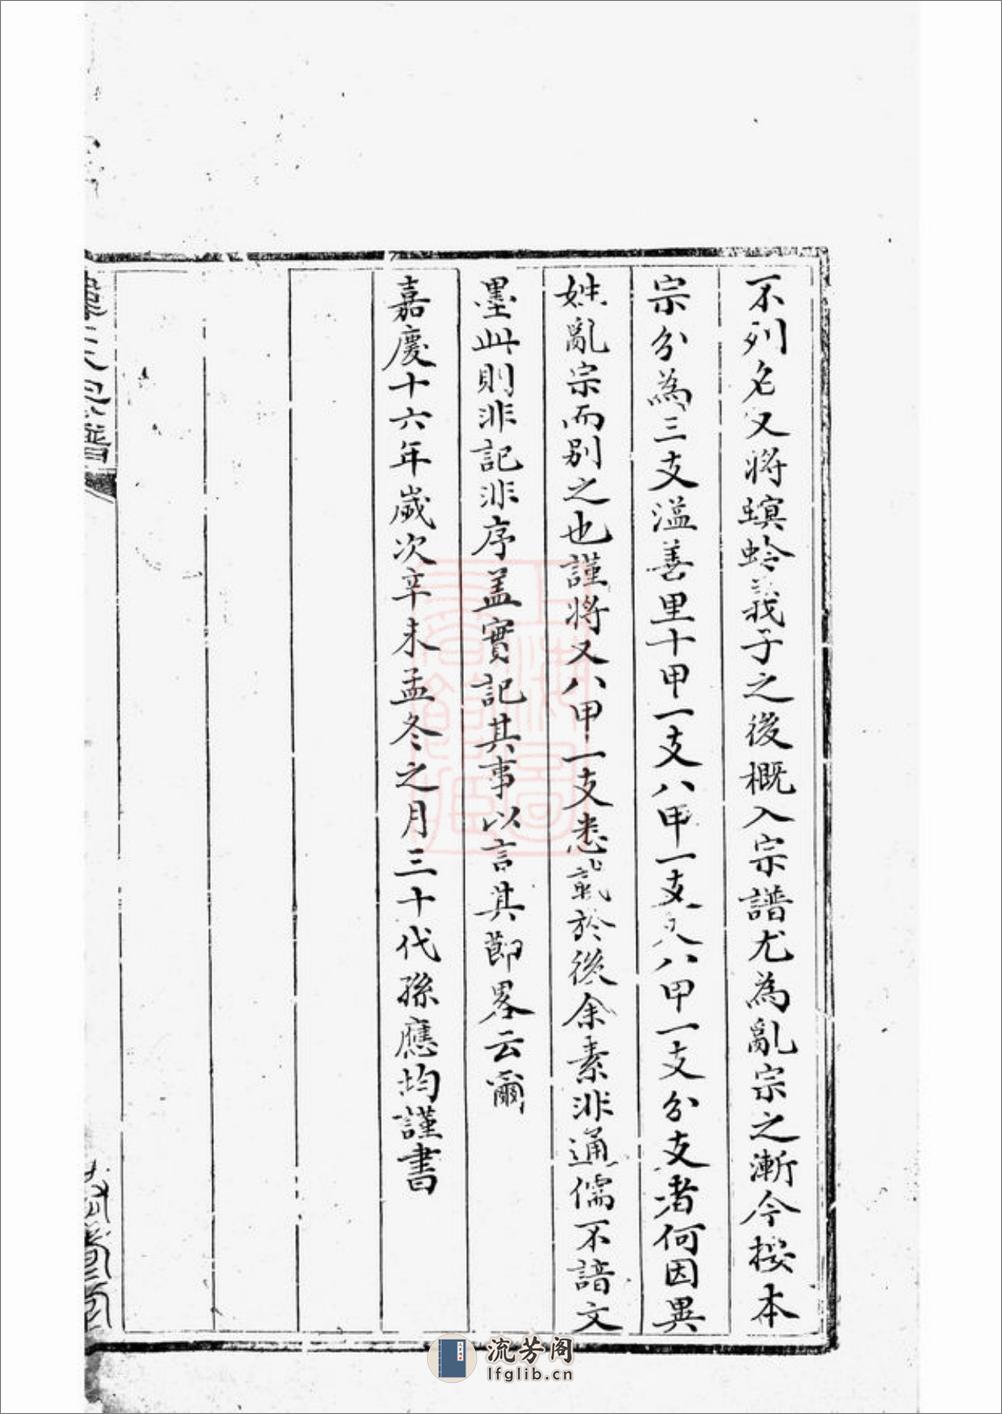 不列名又將螟蛉義子之後概入宗譜尤為亂宗之漸今按本
宗分為三支溢善里十甲一支八甲一支又八甲一支分支者何因異
姓亂宗而别之也謹將又八甲一支悉載於後余素非通儒不諳文
墨此則非記非序盖實記其事以言其節畧云爾
嘉慶十六年歲次辛未孟冬之月三十代孫應均謹書
氏思譜
上海圖書館藏
流芳阁
lfglib.cn